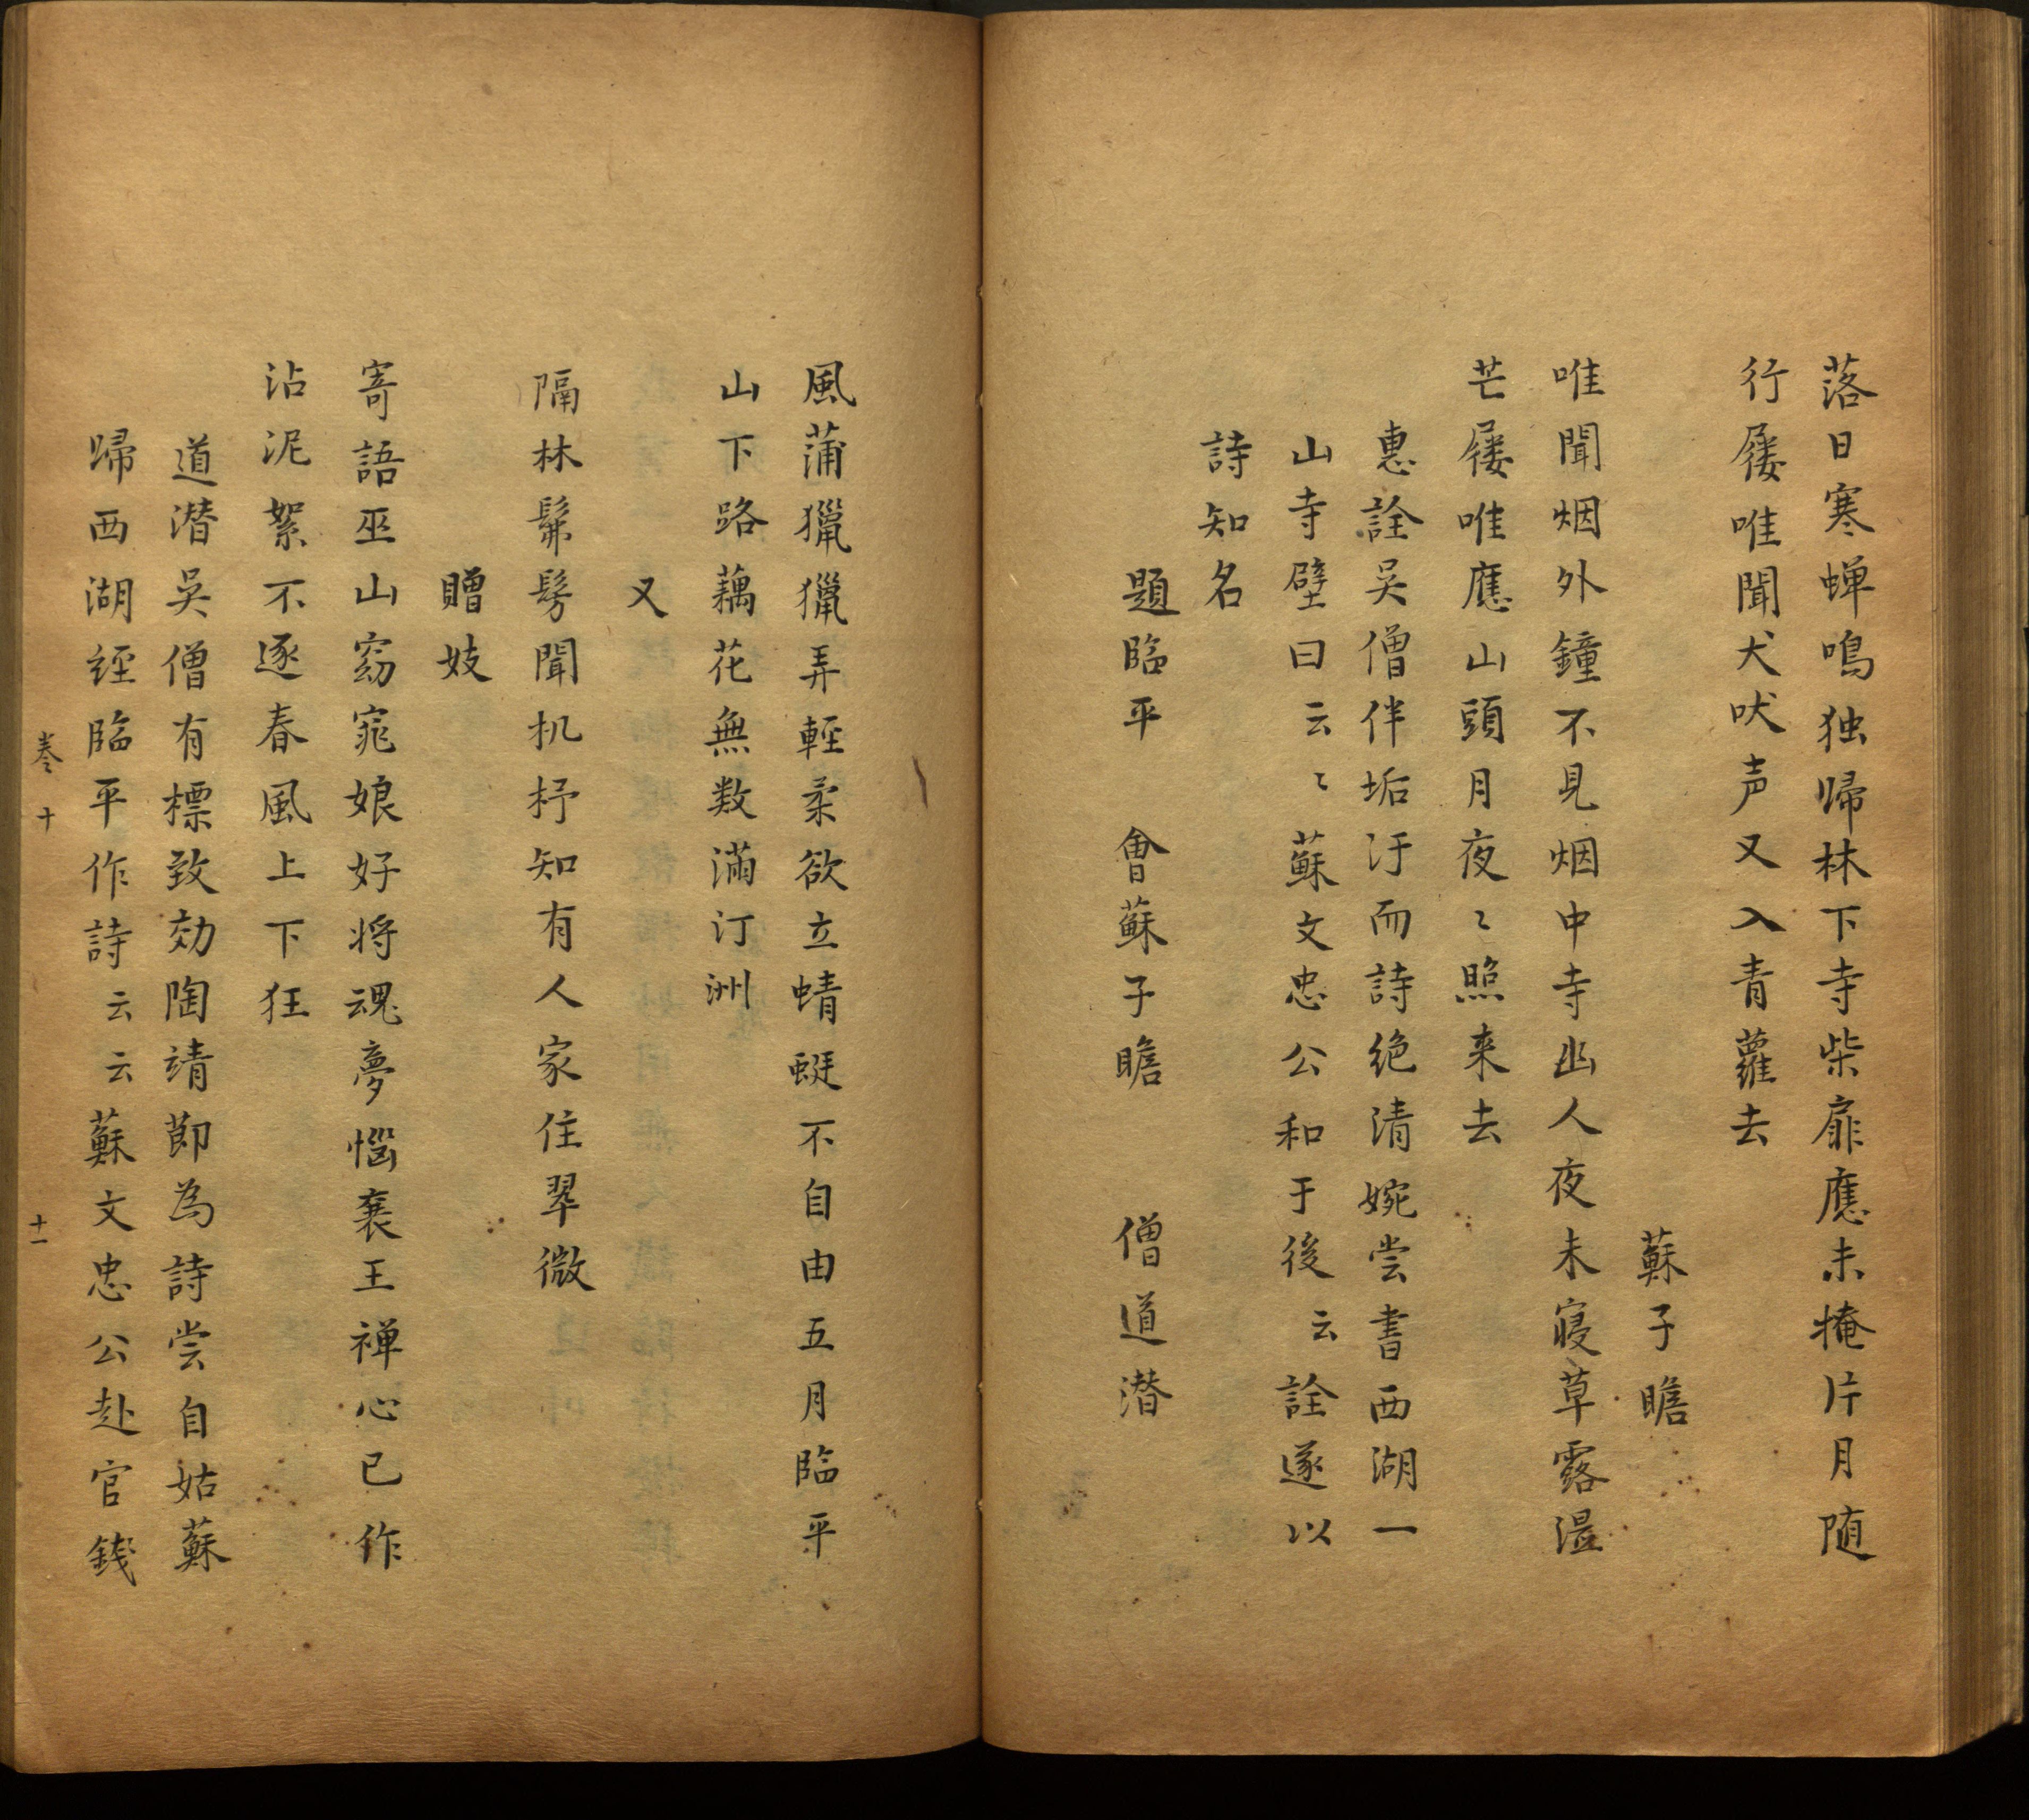 落日寒蝉鳴独歸林下寺柴扉應未掩片月随
行屨唯聞犬吠声又入青蘿去
蘇子瞻
唯聞烟外鐘不見烟中寺幽人夜未寝草露湿
芒屨唯應山頭月夜〻照来去
惠詮吴僧佯垢汙而詩绝清婉尝書西湖一
山寺壁曰云〻蘇文忠公和于後云詮遂以
詩知名
題臨平 會蘇子瞻 僧道潜
風蒲獵獵弄輕柔欲立蜻蜓不自由五月臨平
山下路藕花無数滿汀洲
又
隔林髴髣聞机杼知有人家住翠微
贈妓
寄語巫山窈窕娘好将魂夢惱襄王禅心已作
沾泥絮不逐春風上下狂
道潜吴僧有標致効陶靖節為詩尝自姑蘇
歸西湖経臨平作詩云云蘇文忠公赴官錢
卷十 十一